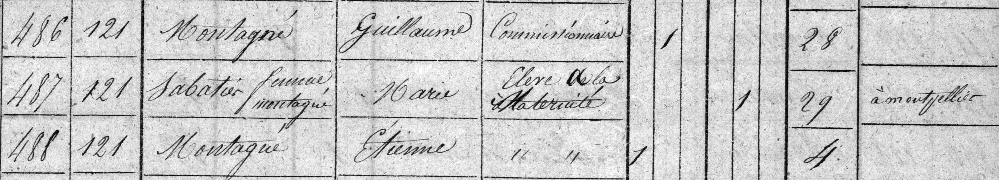 486 121 Montagné Guillaume Commissionnaire 1 28
487 121 Sabatier femme montagné Marie Eleve de la Maternité 1 29 à montpellier
488 121 Montagné Étienne " " 1 4